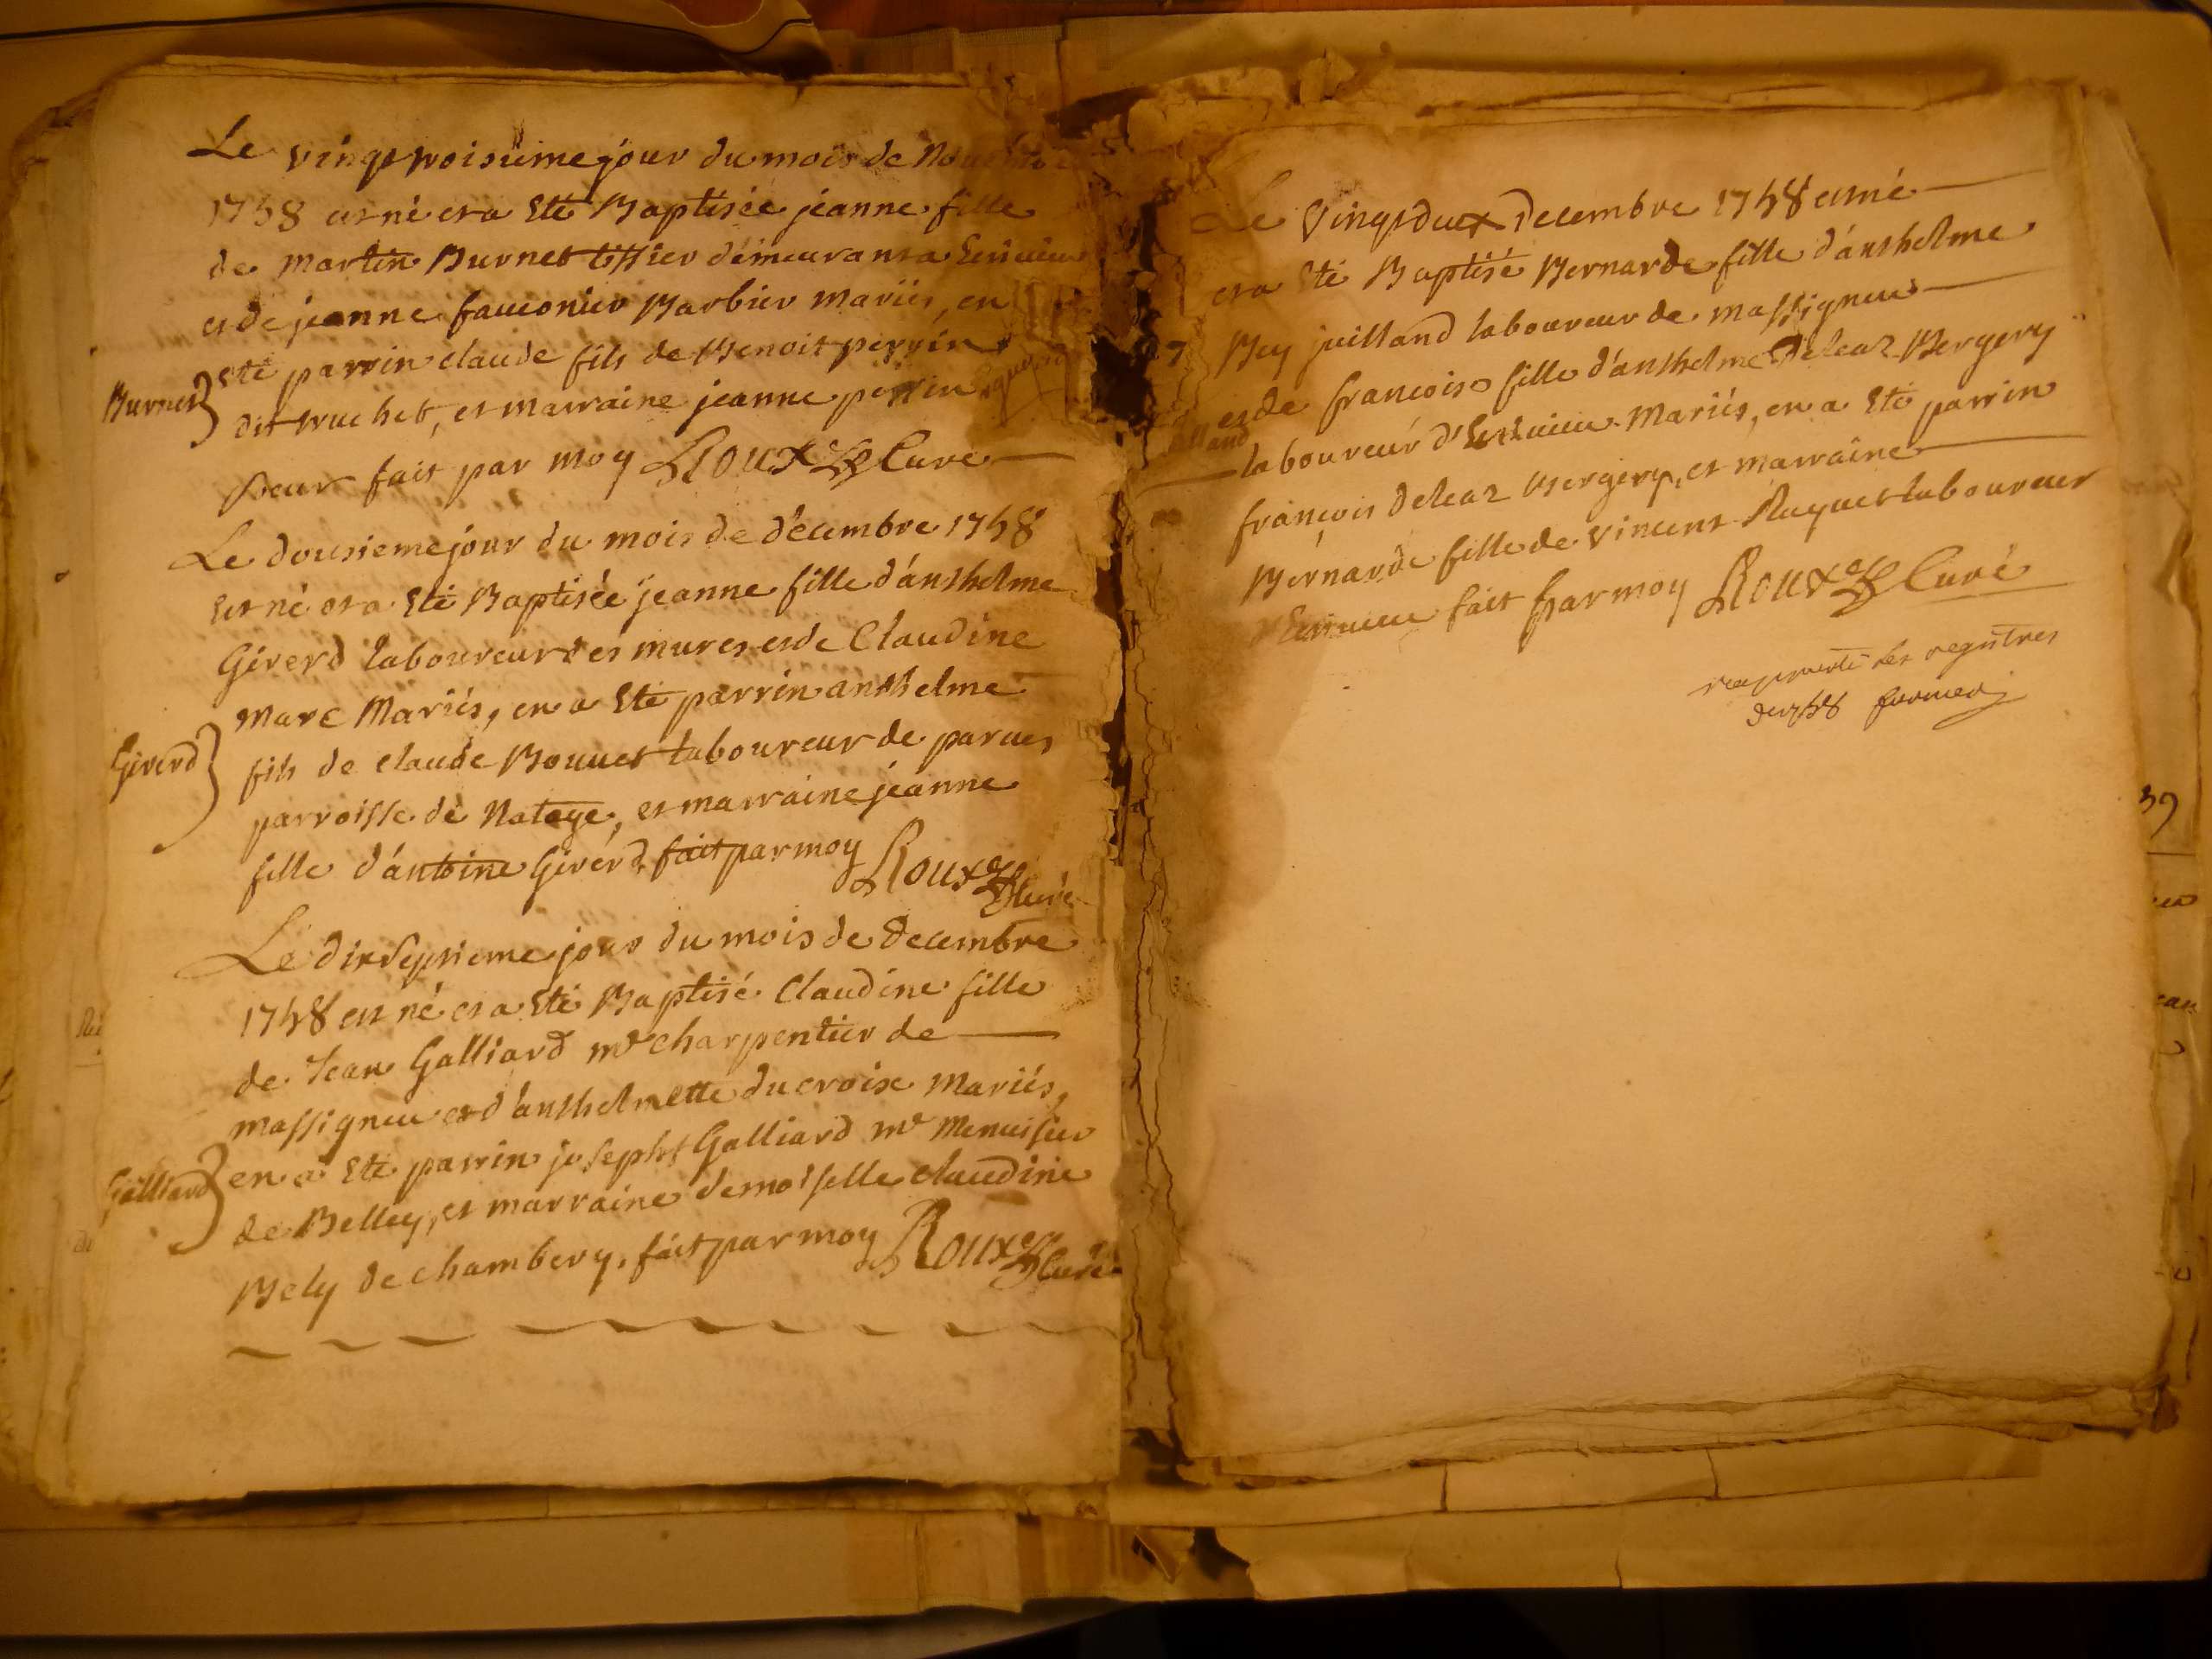 Le vingt troisieme jour du mois de Novembre
1758 est né et a Eté Baptisée jeanne fille
de Martin Burnet tissier demeurant a
et de jeanne fauconier Barbier mariés, en
Burnet} Eté parrin claude fils de Benoit perrin
dit truchet, et marraine jeanne perrin
sœur fait par moy Roux Curé
Le dousieme jour du mois de décembre 1758
Est né et a Eté Baptisée jeanne fille d'anthelme
Girerd laboureur des mures et de Claudine
Marc Mariés, en a Eté parrin anthelme
Girerd} fils de claude Bouuet laboureur de parues
parroisse de Natage, et marraine jeanne
fille d'antoine Girérd, fait par moy Roux Curé
Le dix septieme jour du mois de decembre
1758 est né et a Eté Baptisé Claudine fille
de Jean Galliard me charpentier de
massigneu et d'anthelmette ducroise Mariés,
Galliard} en a Eté parrin joseph Galliard me Menuisier
de Belley, et marraine demoiselle claudine
Bely de chambery, fait par moy Roux Curé
Le Vingt deux Decembre 1758 est né
et a Eté Baptisé Bernarde fille d'anthelme
Bey juilland laboureur de massigneu
et de francoise fille d'anthelme Delear Bergery
laboureur d' Mariés, en a Eté parrin
françois Delear Bergery, et marraine
Bernarde fille de Vincent Ruquet laboureur
fait par moy Roux Curé
les registres
39